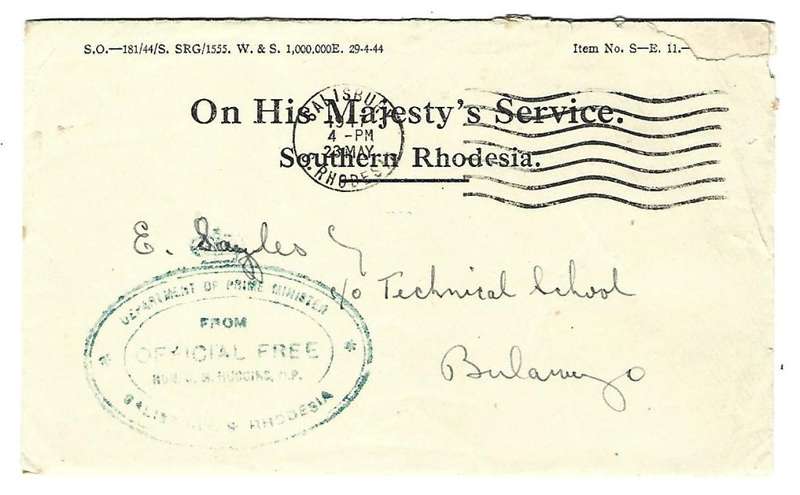 S.O.—181/44/S. SRG/1555. W. & S. 1,000,000E. 29-4-44 Item No. S—E. 11.—
On His Majesty's Service.
Southern Rhodesia.
SALISBURY
4 - PM
23 MAY
S. RHODESIA
E. Sayles
c/o Technical School
Bulawayo
DEPARTMENT OF PRIME MINISTER
FROM
OFFICIAL FREE
HUGGINS, M.P.
SALISBURY S. RHODESIA